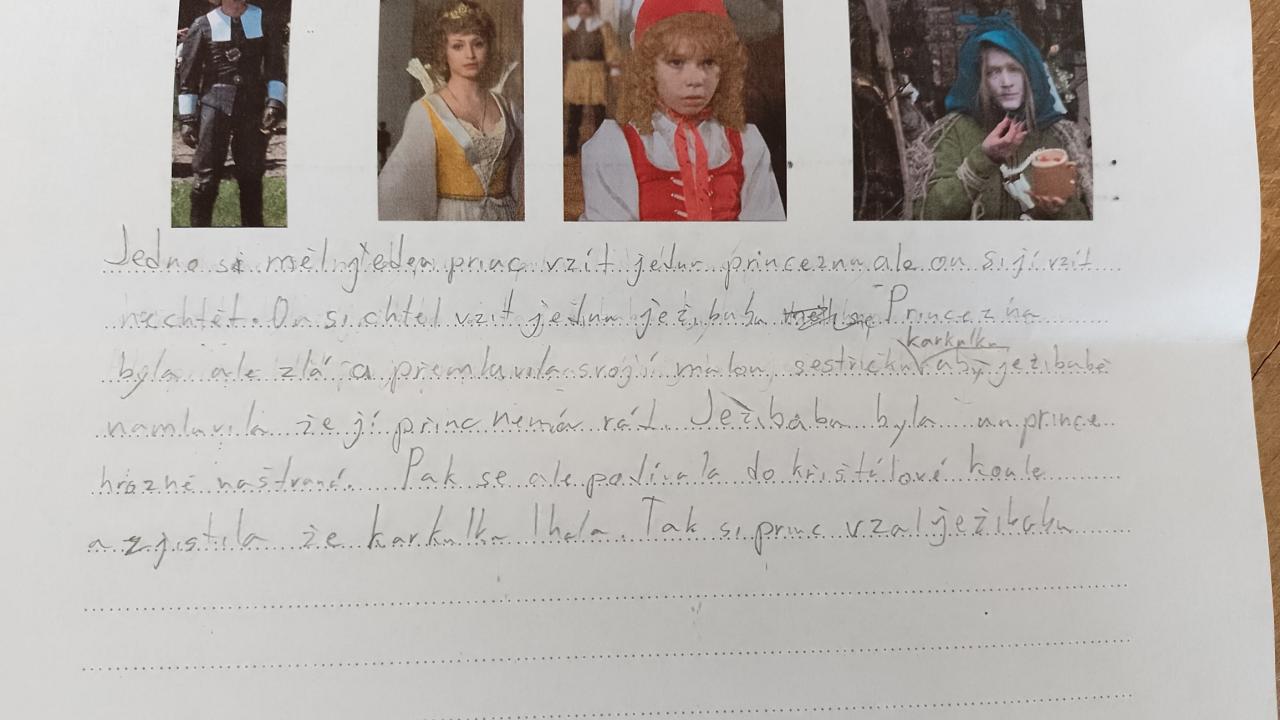 Jedno si měl jeden princ vzít jednu princeznu ale on si jí vzít
nechtět. On si chtěl vzít jednu ježibabu Princezna
karkulku
byla ale zlá a přemluvila svojí malou sestřičku aby ježibabě
namluvila že jí princ nemá rát. Ježibaba byla na prince
hrozně naštvaná. Pak se ale podívala do křištálové koule
a zjistila že karkulka lhala. Tak si princ vzal ježibabu